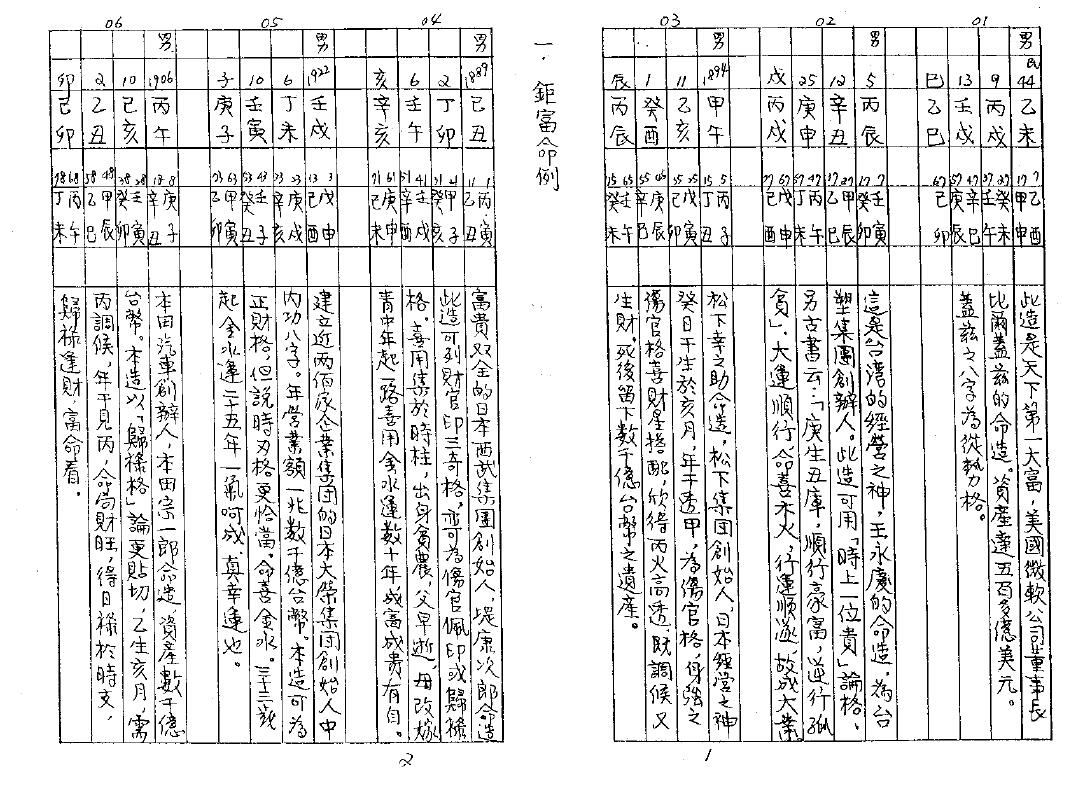 一.鉅富命例
01
男
民44 乙未
9 丙戌
13 壬戌
巳 乙巳
17 7 甲乙 申酉
37 27 壬癸 午未
57 47 庚辛 辰巳
67 己卯
此造是天下第一大富,美國微軟公司董事長
比爾蓋茲的命造。資產達五百多億美元。
蓋茲之八字為從勢格。
02
男
5 丙辰
12 辛丑
25 庚申
戌 丙戌
17 7 癸壬 卯寅
37 27 乙甲 巳辰
57 47 丁丙 未午
77 67 己戊 酉申
這是台灣的經營之神,王永慶的命造,為台
塑集團創辦人。此造可用「時上一位貴」論格,
另古書云:「庚生丑庫,順行豪富,逆行孤
貧」,大運順行,命喜木火,行運順遂,故成大業。
03
男
1894 甲午
11 乙亥
1 癸酉
辰 丙辰
15 5 丁丙 丑子
35 25 己戊 卯寅
55 45 辛庚 巳辰
75 65 癸壬 未午
松下幸之助命造,松下集団創始人,日本經营之神
癸日干生於亥月,年干透甲,為傷官格,身強之
傷官格喜財星搭配,欣得丙火高透,既調候又
生財。死後留下数千億台幣之遺產。
1
04
男
1889 己丑
2 丁卯
6 壬午
亥 辛亥
11 1 乙丙 丑寅
31 21 癸甲 亥子
51 41 辛壬 酉戌
71 61 己庚 未申
富貴双全的日本西武集團創始人,堤康次郎命造
此造可列財官印三奇格,亦可為傷官佩印或歸祿
格。喜用集於時柱,出身貧農,父早逝,母改嫁
青中年起一路喜用金水運数十年成富成貴有自。
05
男
1922 壬戌
6 丁未
10 壬寅
子 庚子
13 3 己戊 酉申
33 23 辛庚 亥戌
53 43 癸壬 丑子
73 63 乙甲 卯寅
建立近兩佰家企業集団的日本大榮集団創始人中
内功八字。年營業額一兆数千億台幣。本造可為
正財格,但說時刃格更恰當。命喜金水。三十三歲
起金水運二十五年一氣呵成,真幸運也。
06
男
1906 丙午
10 己亥
2 乙丑
卯 己卯
18 8 辛庚 丑子
38 28 癸壬 卯寅
58 48 乙甲 巳辰
78 68 丁丙 未午
本田汽車創辦人,本田宗一郎命造,資產數千億
台幣。本造以「歸祿格」論更貼切,乙生亥月,需
丙調候,年干見丙,命局財旺,得日祿於時支,
歸祿逢財,富命看。
2